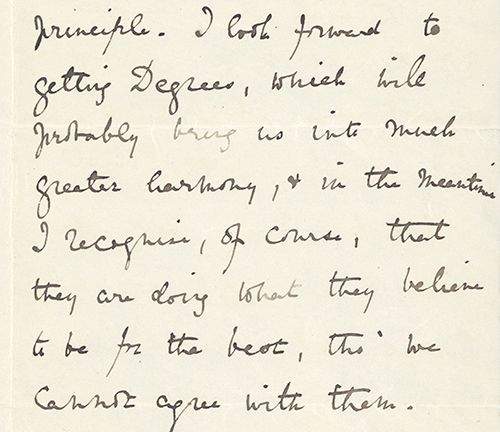 principle. I look forward to
getting Degrees, which will
probably bring us into much
greater harmony, & in the meantime
I recognise, of course, that
they are doing what they believe
to be for the best, tho' we
cannot agree with them.